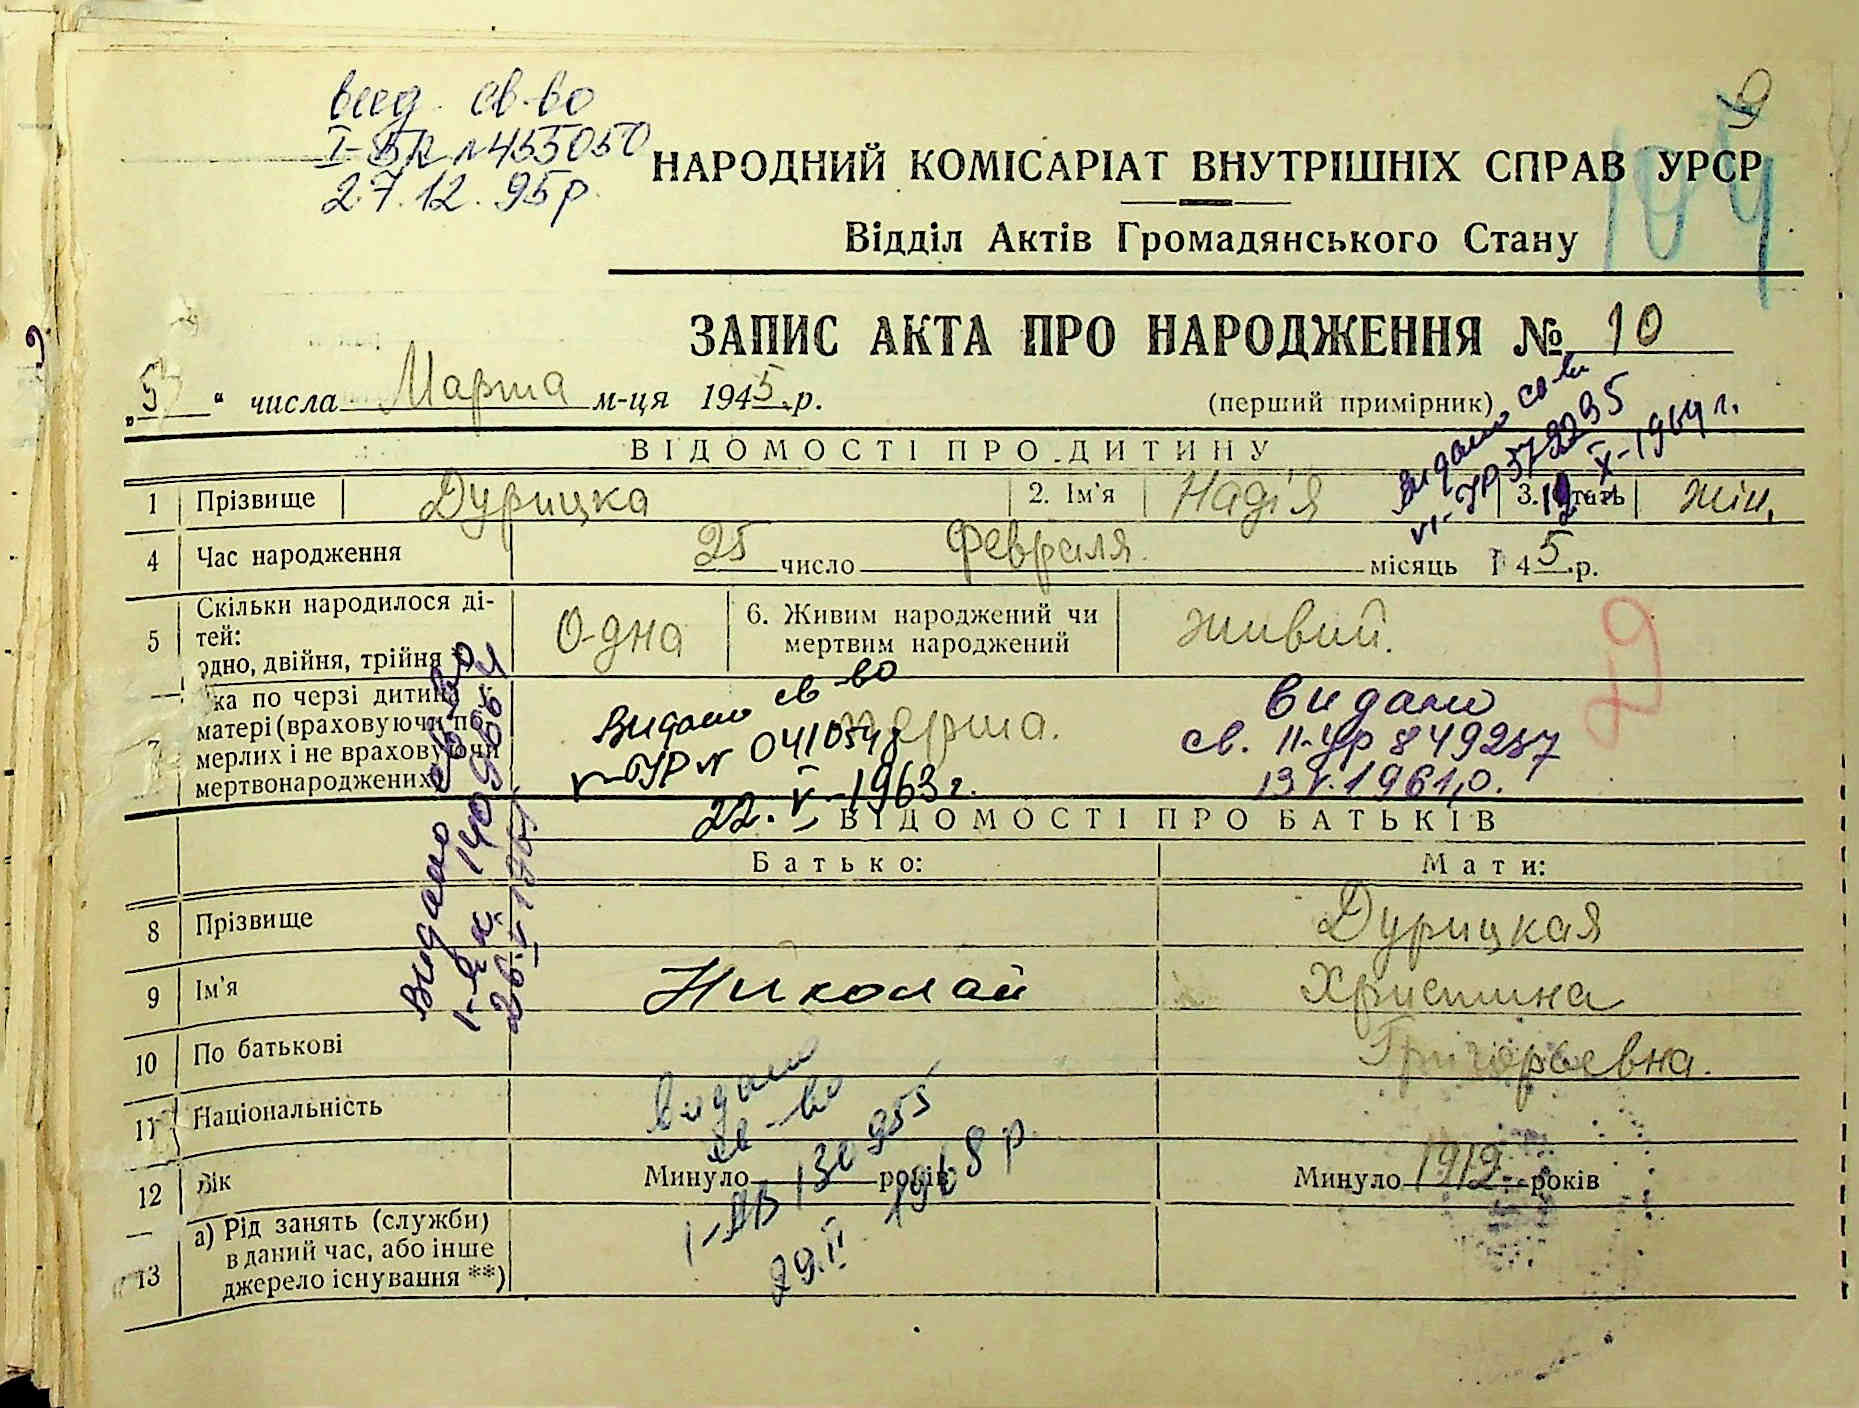 вид. св-во
I-БК №455050
27.12.95р.
9
104
НАРОДНИЙ КОМІСАРІАТ ВНУТРІШНІХ СПРАВ УРСР
Відділ Актів Громадянського Стану
ЗАПИС АКТА ПРО НАРОДЖЕННЯ № 10
„5“ числа Марта м-ця 1945 р.
(перший примірник)
Видано св-во
VI-УР 3722
X-1964 г.
ВІДОМОСТІ ПРО ДИТИНУ
1 Прізвище Дурицка 2. Ім'я Надія 3. Стать жін.
4 Час народження 25 число Февраля місяць 1 45 р.
5 Скільки народилося ді-
тей:
одно, двійня, трійня
Одна
6. Живим народжений чи
мертвим народжений
живий.
29
7 ка по черзі дитина
матері (враховуючи по-
мерлих і не враховуючи
мертвонароджених
перша.
Видано св-во
V-УР № 04105
22.V-1963 г.
видано
св. II-УР 849287
13.V.1961 р.
Видано св-во
26.V-196
ВІДОМОСТІ ПРО БАТЬКІВ
Батько: Мати:
8 Прізвище Дурицкая
9 Ім'я Николай Христина
10 По батькові Григорьевна.
11 Національність
12 Вік Минуло років Минуло 1912 років
видано
св-во
29.II 1968 р
13 а) Рід занять (служби)
в даний час, або інше
джерело існування **)